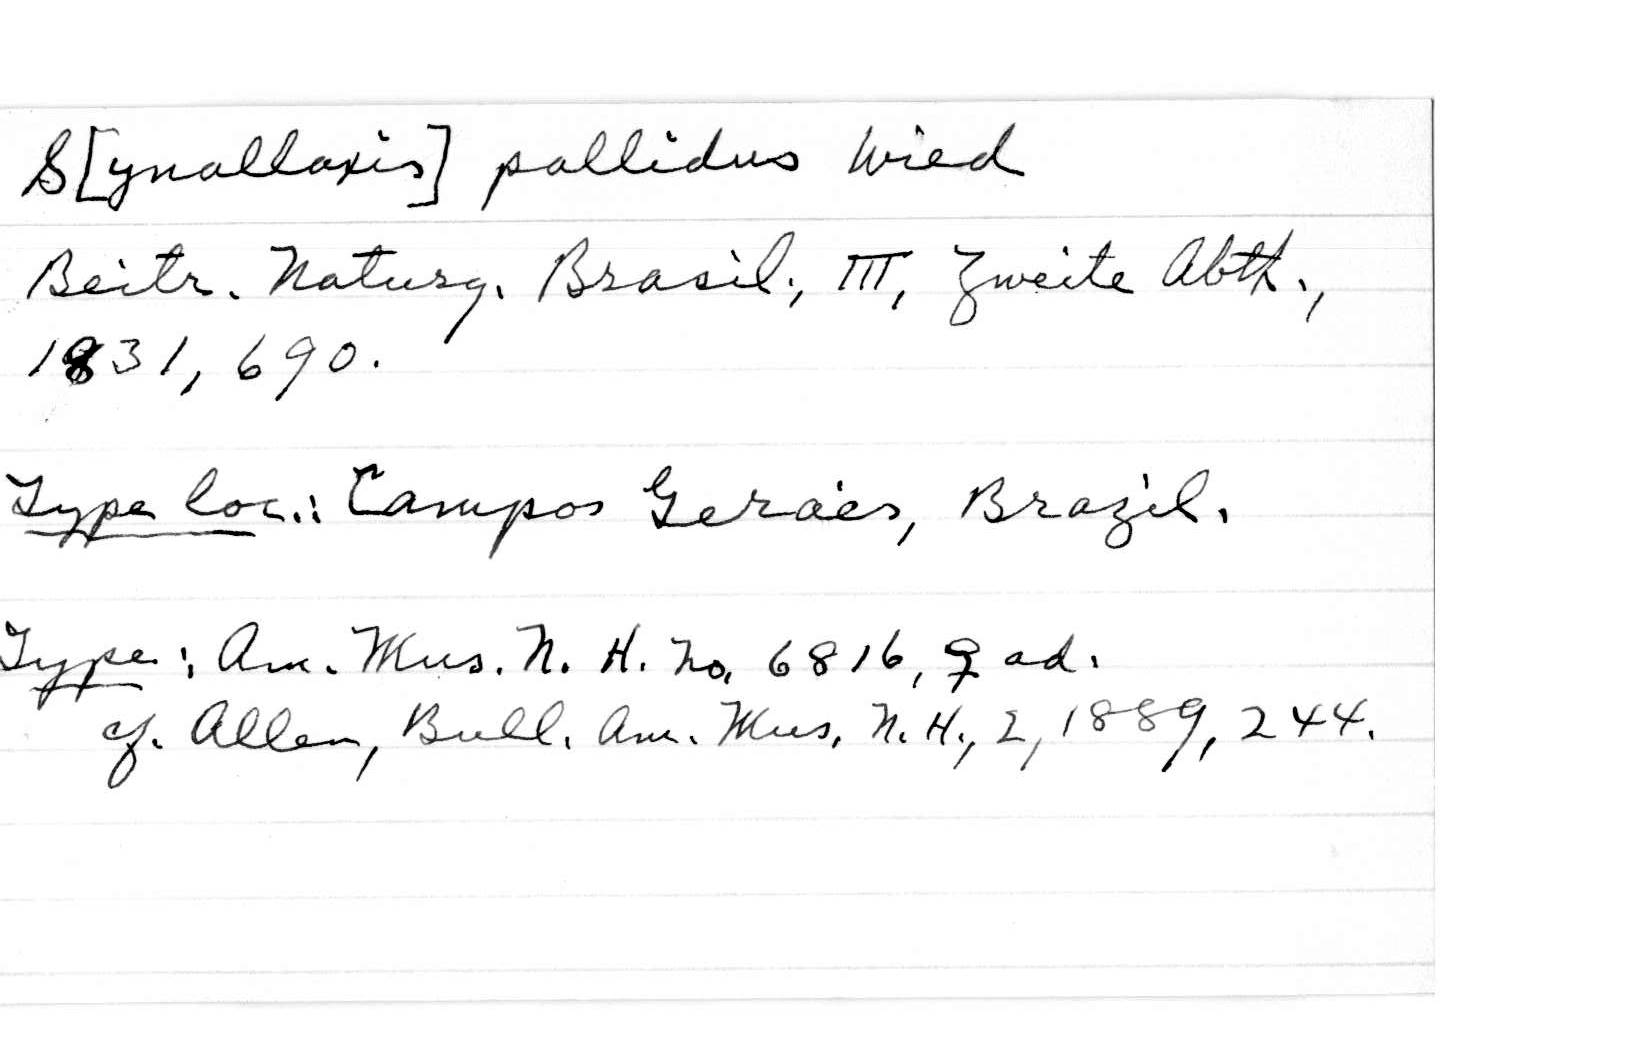 S[ynallaxis] pallidus Wied
Beitr. Naturg. Brasil., III, Zweite Abth.,
1831, 690.
Type loc.: Campos Geraës, Brazil.
Type: Am. Mus. N. H. No. 6816, ♀ ad.
cf. Allen, Bull. Am. Mus. N. H., 2, 1889, 244.